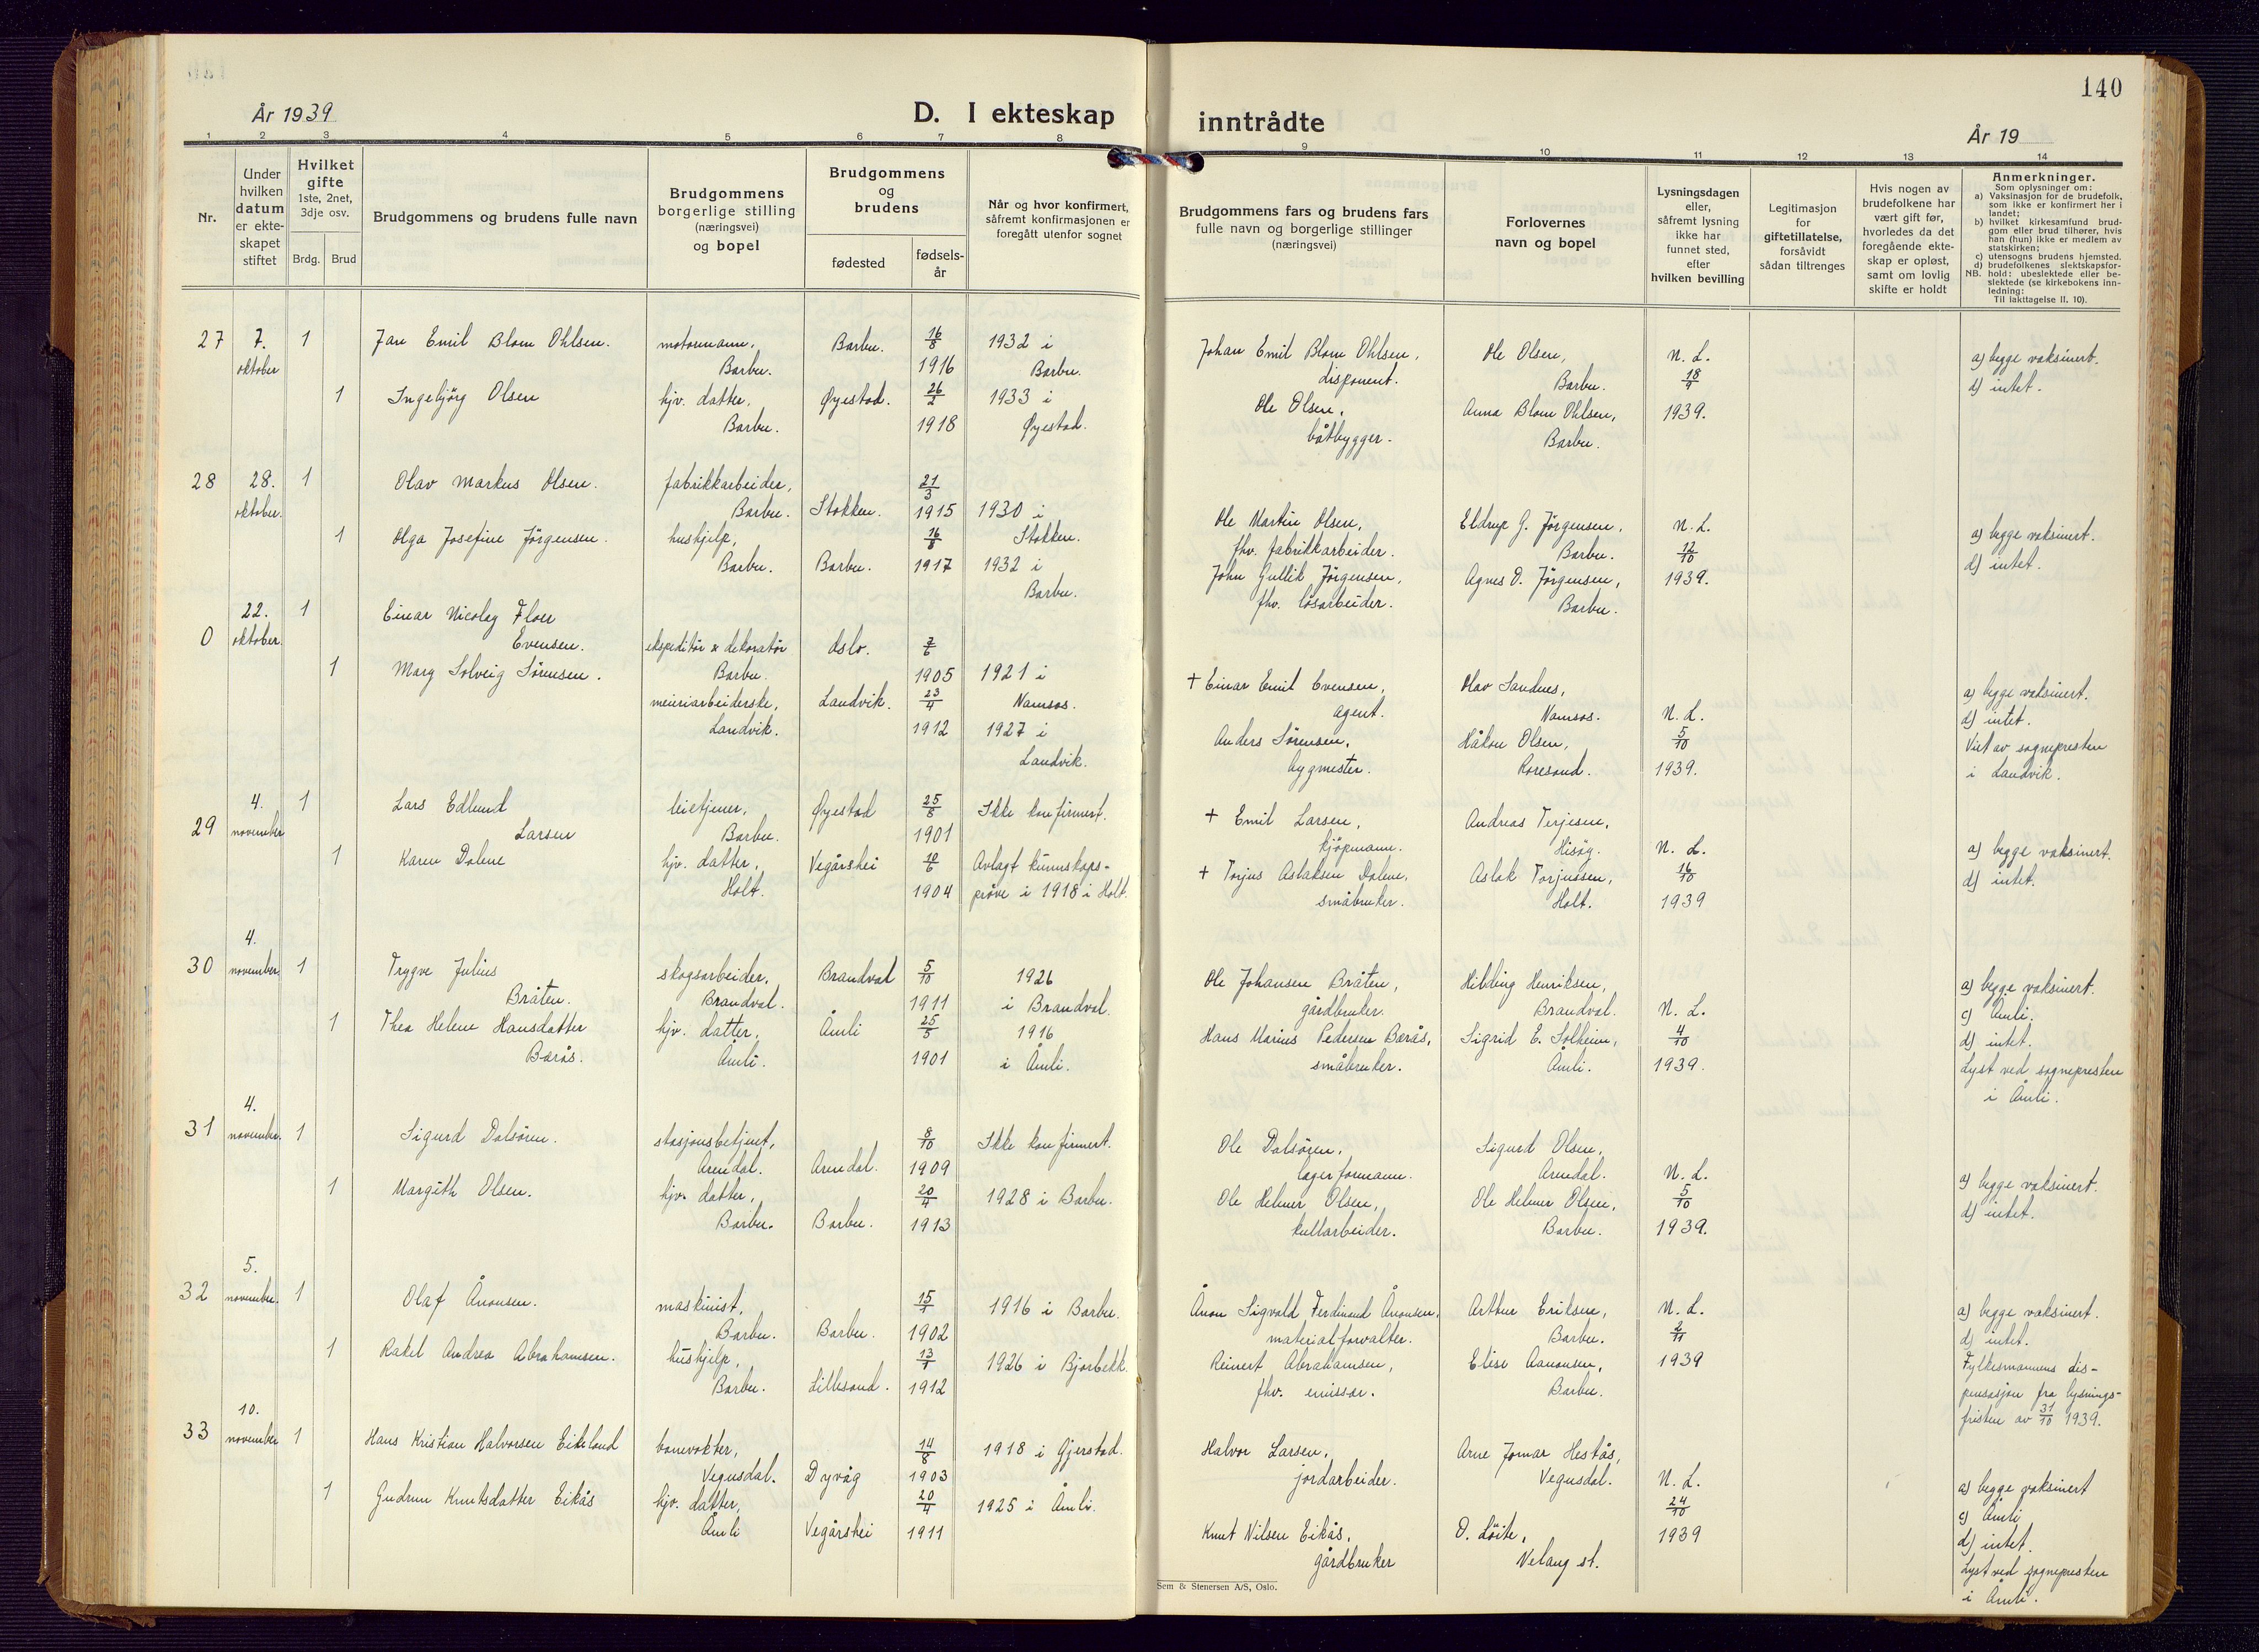 140
År 1939
D. I ekteskap
inntrådte
År 19
1 2 3 4 5 6 7 8 9 10 11 12 13 14
Nr.
Under hvilken datum er ekteskapet stiftet
Hvilket gifte 1ste, 2net, 3dje osv.
Brdg. Brud
Brudgommens og brudens fulle navn
Brudgommens borgerlige stilling (næringsvei) og bopel
Brudgommens og brudens
fødested
fødselsår
Når og hvor konfirmert, såfremt konfirmasjonen er foregått utenfor sognet
Brudgommens fars og brudens fars fulle navn og borgerlige stillinger (næringsvei)
Forlovernes navn og bopel
Lysningsdagen eller, såfremt lysning ikke har funnet sted, efter hvilken bevilling
Legitimasjon for giftetillatelse, forsåvidt sådan tiltrenges
Hvis nogen av brudefolkene har vært gift før, hvorledes da det foregående ekteskap er opløst, samt om lovlig skifte er holdt
Anmerkninger.
Som oplysninger om:
a) Vaksinasjon for de brudefolk, som ikke er konfirmert her i landet;
b) hvilket kirkesamfund brudgom eller brud tilhører, hvis han (hun) ikke er medlem av statskirken;
c) utensogns brudens hjemsted.
d) brudefolkenes slektskapsforhold: ubeslektede eller beslektede (se kirkebokens innledning:
NB.
Til iakttagelse II. 10).
27 7. oktober 1 Jan Emil Blom Ohlsen. motormann, Barbu. Barbu. 16/8 1916 1932 i Barbu.
1 Ingebjörg Olsen hjv. datter, Barbu. Øyestad. 26/2 1918 1933 i Øyestad.
Johan Emil Blom Ohlsen, disponent. Ole Olsen, Barbu. N. L. 18/9 1939. a) begge vaksinert.
Ole Olsen, båtbygger. Anna Blom Ohlsen, Barbu. d) intet.
28 28. oktober. 1 Olav Markus Olsen. fabrikkarbeider, Barbu. Stokken. 21/3 1915 1930 i Stokken.
1 Olga Josefine Jörgensen. hushjelp, Barbu. Barbu. 16/8 1917 1932 i Barbu.
Ole Martin Olsen, fhv. fabrikkarbeider. Eldrup G. Jörgensen, Barbu. N. L. 12/10 1939. a) begge vaksinert.
John Gullik Jörgensen, fhv. lösarbeider. Agnes O. Jörgensen, Barbu. d) intet.
0 22. oktober. 1 Einar Nicolay Floer Evensen. ekspeditör & dekoratör Barbu. Oslo. 7/6 1905 1921 i Namsos.
1 Mary Solveig Sörensen. meieriarbeiderske, Landvik. Landvik. 23/4 1912 1927 i Landvik.
+ Einar Emil Evensen, agent. Olav Sandnes, Namsos. N. L. 5/10 1939. a) begge vaksinert.
Anders Sörensen, bygmester. Håkon Olsen, Roresand. d) intet.
Viet av sognepresten i Landvik.
29 4. november 1 Lars Edlund Larsen leietjener, Barbu. Øyestad 25/8 1901 Ikke konfirmert.
1 Karen Dalene hjv. datter, Holt. Vegårshei 10/6 1904 Avlagt kunnskapspröve i 1918 i Holt.
+ Emil Larsen, kjöpmann. Andreas Terjesen, Hisöy. N. L. 16/10 1939 a) begge vaksinert.
+ Torjus Aslaksen Dalene, småbruker. Aslak Torjussen, Holt. d) intet.
30 4. november 1 Trygve Julius Bråten. skogsarbeider, Brandval. Brandval 5/10 1911 1926 i Brandval.
1 Thea Helene Hansdatter Berås. hjv. datter, Åmli. Åmli 25/5 1901 1916 i Åmli.
Ole Johansen Bråten, gårdbruker. Hilding Henriksen, Brandval. N. L. 4/10 1939. a) begge vaksinert.
Hans Marius Pedersen Berås, småbruker. Sigrid E. Solheim, Åmli. c) Åmli.
d) intet.
Lyst ved sognepresten i Åmli.
31 4. november. 1 Sigurd Dalsören. stasjonsbetjent, Arendal. Arendal. 8/10 1909 Ikke konfirmert.
1 Margith Olsen. hjv. datter, Barbu. Barbu. 20/4 1913 1928 i Barbu.
Ole Dalsören, lagerformann. Sigurd Olsen, Arendal. N. L. 5/10 1939. a) begge vaksinert.
Ole Helmer Olsen, kullarbeider. Ole Helmer Olsen, Barbu. d) intet.
32 5. november. 1 Olaf Ånonsen. maskinist, Barbu. Barbu. 15/1 1902 1916 i Barbu.
1 Rakel Andrea Abrahamsen. hushjelp, Barbu. Lillesand. 13/1 1912 1926 i Bjorbekk.
Ånon Sigvald Ferdinand Ånonsen, materialforvalter. Arthur Eriksen, Barbu. N. L. 2/11 1939 a) begge vaksinert.
Reinert Abrahamsen, fhv. emissær. Elise Aanonsen, Barbu. d) intet.
Fylkesmannens dispensasjon fra lysningsfristen av 31/10 1939.
33 10. november 1 Hans Kristian Halvorsen Eikeland banevokter, Vegusdal. Dyvåg 14/8 1903 1918 i Gjerstad.
1 Gudrun Knutsdatter Eikås hjv. datter, Åmli Vegårshei 20/4 1911 1925 i Åmli.
Halvor Larsen, jordarbeider. Arne Jomar Hestås, Vegusdal. N. L. 24/10 1939 a) begge vaksinert
Knut Nilsen Eikås, gårdbruker O. Löite, Nelaug st. c) Åmli
d) intet.
Lyst ved sognepresten i Åmli.
Sem & Stenersen A/S, Oslo.